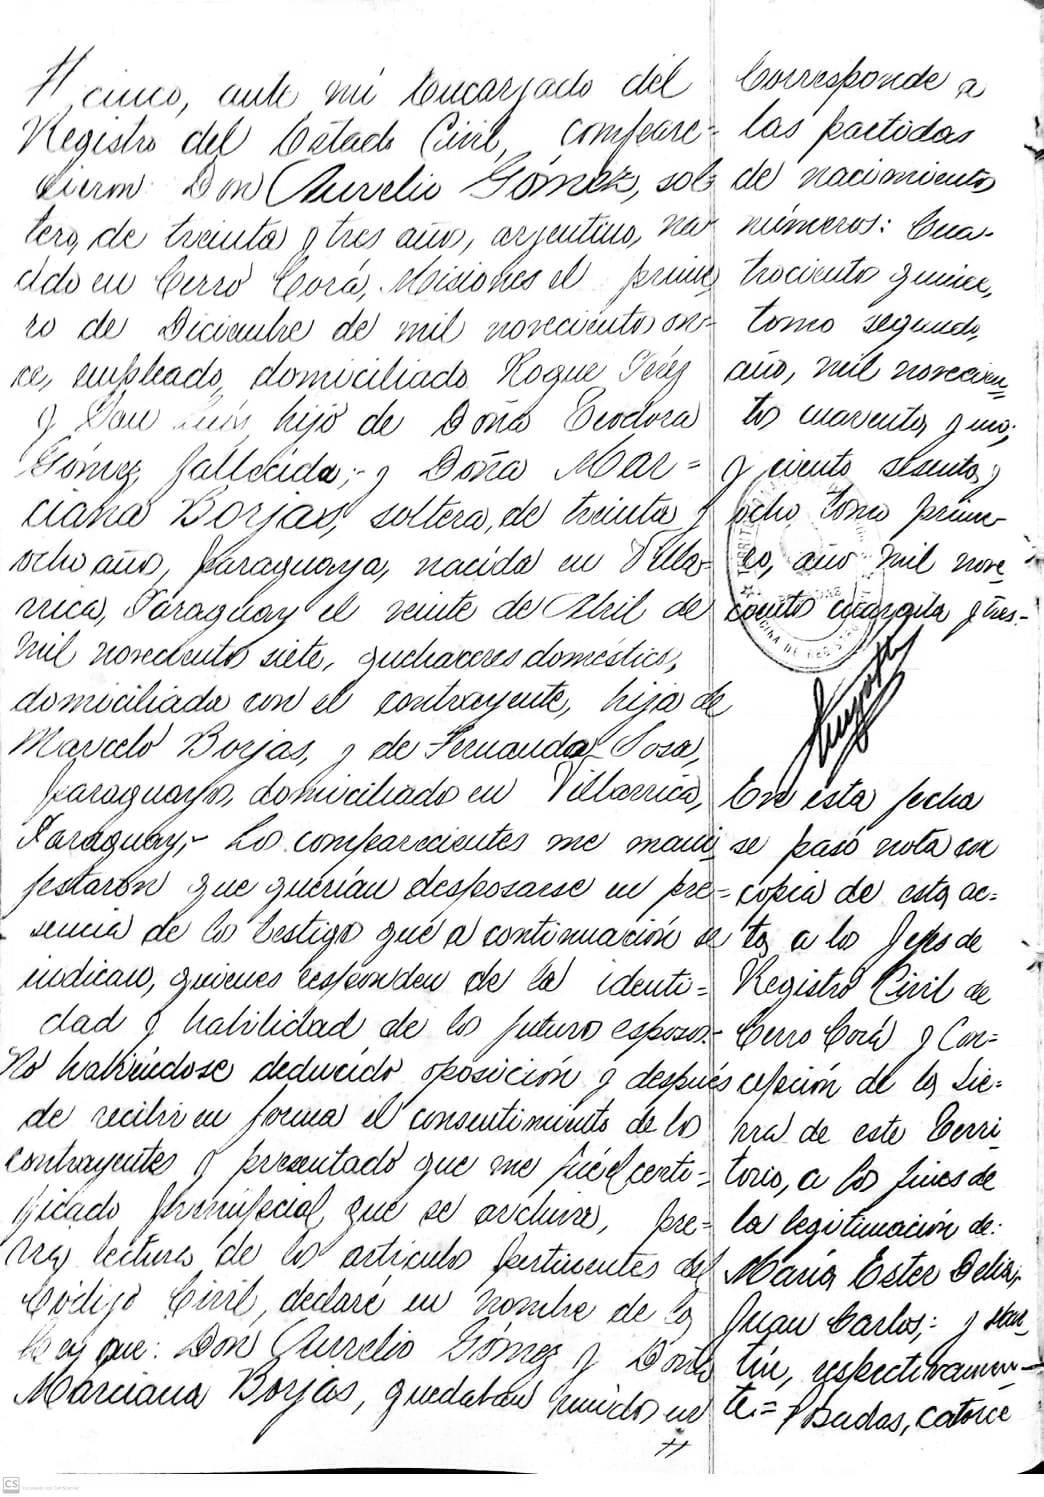 cinco, ante mi Encargado del
Registro del Estado Civil, compare=
cieron: Don Aurelio Gómez, sol-
tero, de treinta y tres años, argentino, na-
cido en Cerro Corá, Misiones el prime
ro de Diciembre de mil novecientos on-
ce, empleado, domiciliado Roque Peréz
y San hijo de Doña Teodora
Gómez, fallecida;- y Doña Mar=
ciana Borjas, soltera, de treinta y
ocho años, paraguaya, nacida en Villa-
rrica, Paraguay el veinte de Abril de
mil novecientos siete, quehaceres domésticos,
domiciliada con el contrayente, hija de
Marcelo Borjas, y de Fernanda Sosa,
paraguayos, domiciliado en Villarrica,
Paraguay,- Los comparecientes me mani
festaron que querían desposarse en pre=
sencia de los testigos que a continuación se
indican, quienes responden de la identi=
dad y habilidad de los futuros esposos.-
No habiéndose deducido oposición y después
de recibir en forma el consentimiento de los
contrayentes y presentado que me fué el certi=
ficado prenupcial, que se archiva, pre=
via lectura de los artículos pertinentes del
Código Civil, declaré en nombre de la
Ley que: Don Aurelio Gómez y Doña
Marciana Borjas, quedaban unidos en
Corresponde a
las partidas
de nacimientos
números: Cua-
trocientos quince,
tomo segundo,
año, mil novecien=
tos cuarenta y uno;
y ciento sesenta y
ocho, tomo prime-
ro, año mil nove=
cientos cuarenta y tres.-
En esta fecha
se pasó nota con
copia de esta ac=
ta a los Jefes de
Registro Civil de
Cerro Corá y Con=
cepción de la Sie=
rra de este Terri
torio, a los fines de
la legitimación de:
María Ester Delia;
Juan Carlos;- y Mar-
tín, respectivamen-
te.= Posadas, catorce
CS